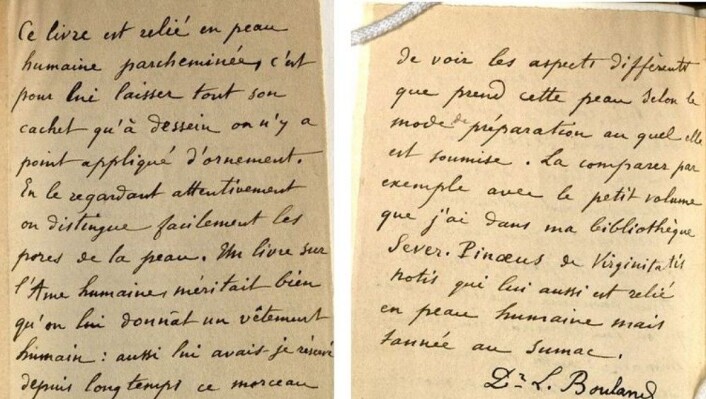 Ce livre est relié en peau
humaine parcheminée, c'est
pour lui laisser tout son
cachet qu'à dessein on n'y a
point appliqué d'ornement.
En le regardant attentivement
on distingue facilement les
pores de la peau. Un livre sur
l'Ame humaine, méritait bien
qu'on lui donnât un vêtement
humain : aussi lui avais-je réservé
depuis longtemps ce morceau
de voir les aspects différents
que prend cette peau selon le
mode de préparation au quel elle
est soumise. La comparer par
exemple avec le petit volume
que j'ai dans ma bibliothèque
Sever. Pinæus de Virginitatis
notis qui lui aussi est relié
en peau humaine mais
tannée au sumac.
Dr L. Bouland